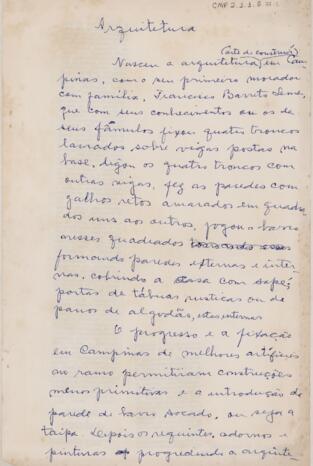 CMP 2.1.1.8
Arquitetura
(arte de construir)
Nasceu a arquitetura em Cam
pinas, com o seu primeiro morador
com familia, Francisco Barreto Leme,
que com seus conhecimentos ou os de
seus fâmulos fixou quatro troncos
lavrados sobre vigas postas na
base, ligou os quatro troncos com
outras vigas, fez as paredes com
galhos retos amarados em quadra
dos uns aos outros, jogou o barro
nesses quadrados
formando paredes externas e inter
nas, cobrindo a casa com sapé,
portas de tábuas rusticas ou de
panos de algodão, estas internas
O progresso e a fixação
em Campinas de melhores artifices
ao ramo permitiram construções
menos primitivas e a introdução da
parede de barro socado, ou seja a
taipa. Depois os requintes, adornos e
pinturas progredindo a arquite